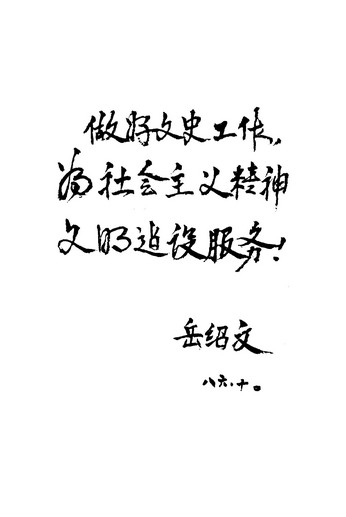 做好文史工作，
为社会主义精神
文明建设服务！
岳绍文
八六.十.